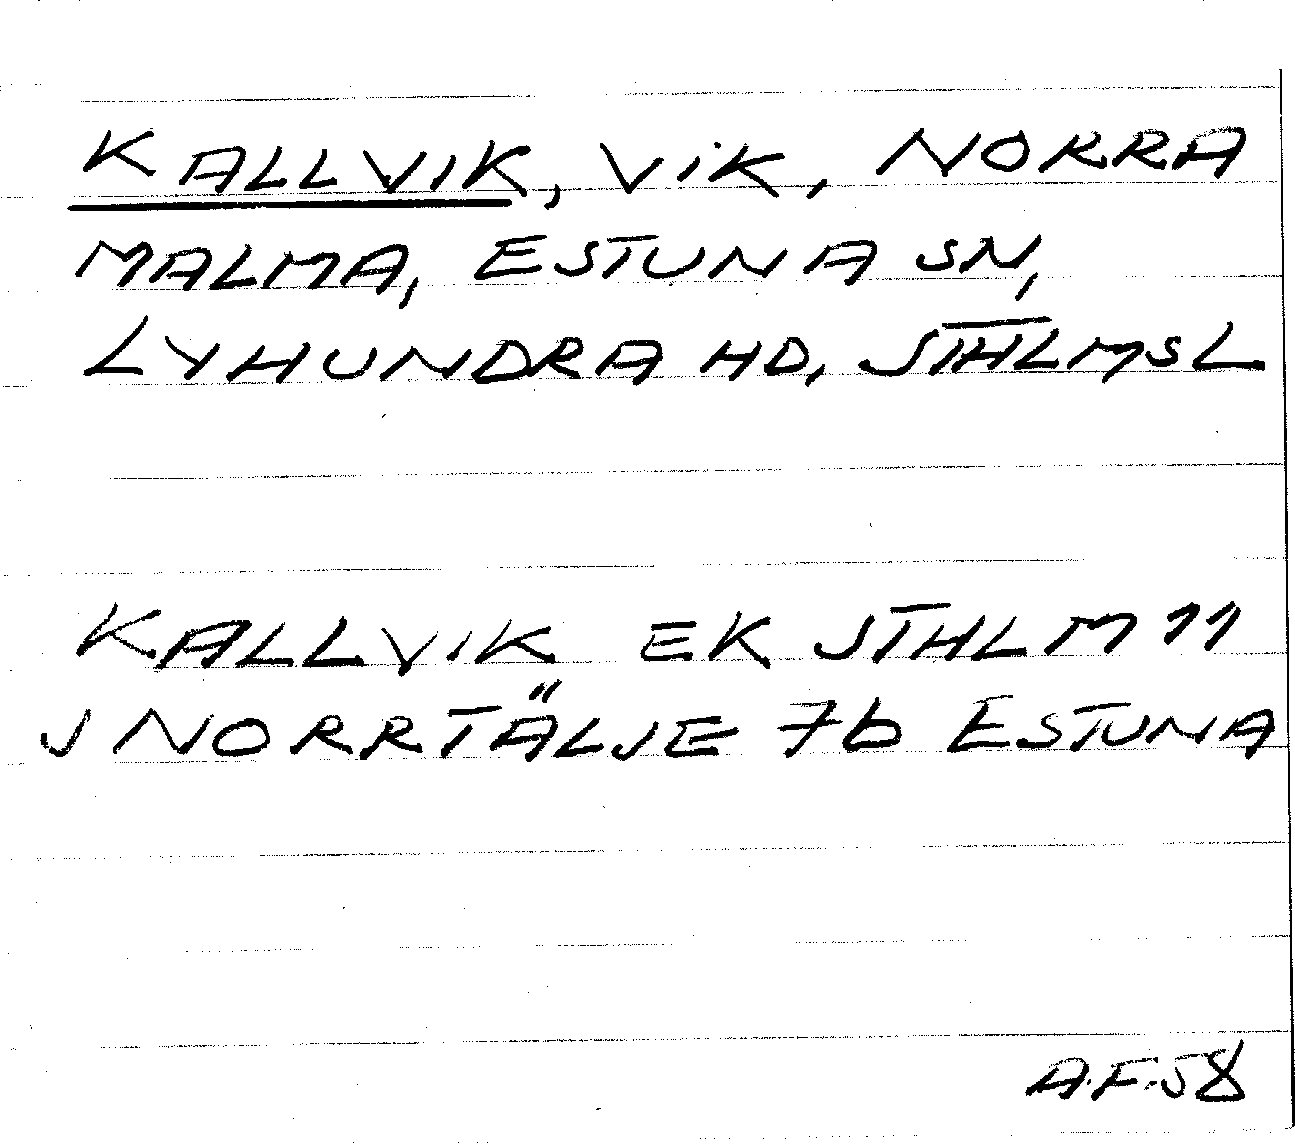 KALLVIK, VIK, NORRA
MALMA, ESTUNA SN,
LYHUNDRA HD, STHLMSL
KALLVIK EK STHLM 11
J NORRTÄLJE 7b ESTUNA
A.F.58